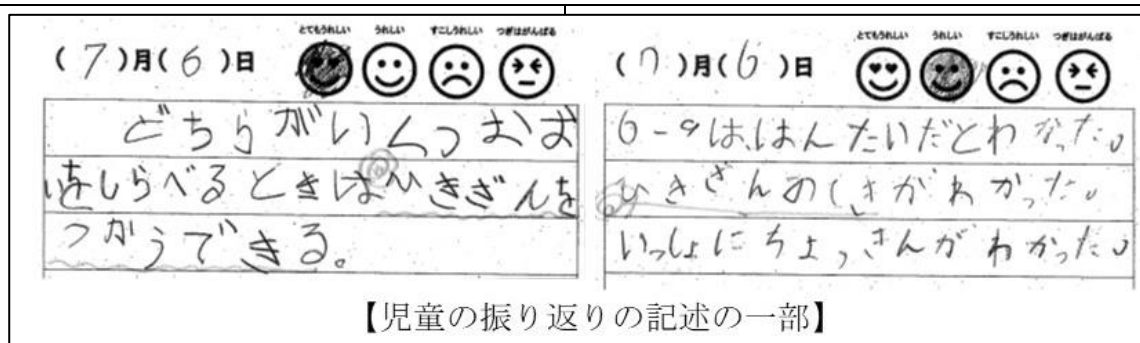 とてもうれしい うれしい すこしうれしい つぎはがんばる
(7)月(6)日
どちらがいくつおお
いをしらべるときはひきざんを
つかうできる。
とてもうれしい うれしい すこしうれしい つぎはがんばる
(7)月(6)日
6-9は、はんたいだとわなった。
ひきざんのしきがわかった。
いっしょにちょっさんがわかった。
【児童の振り返りの記述の一部】